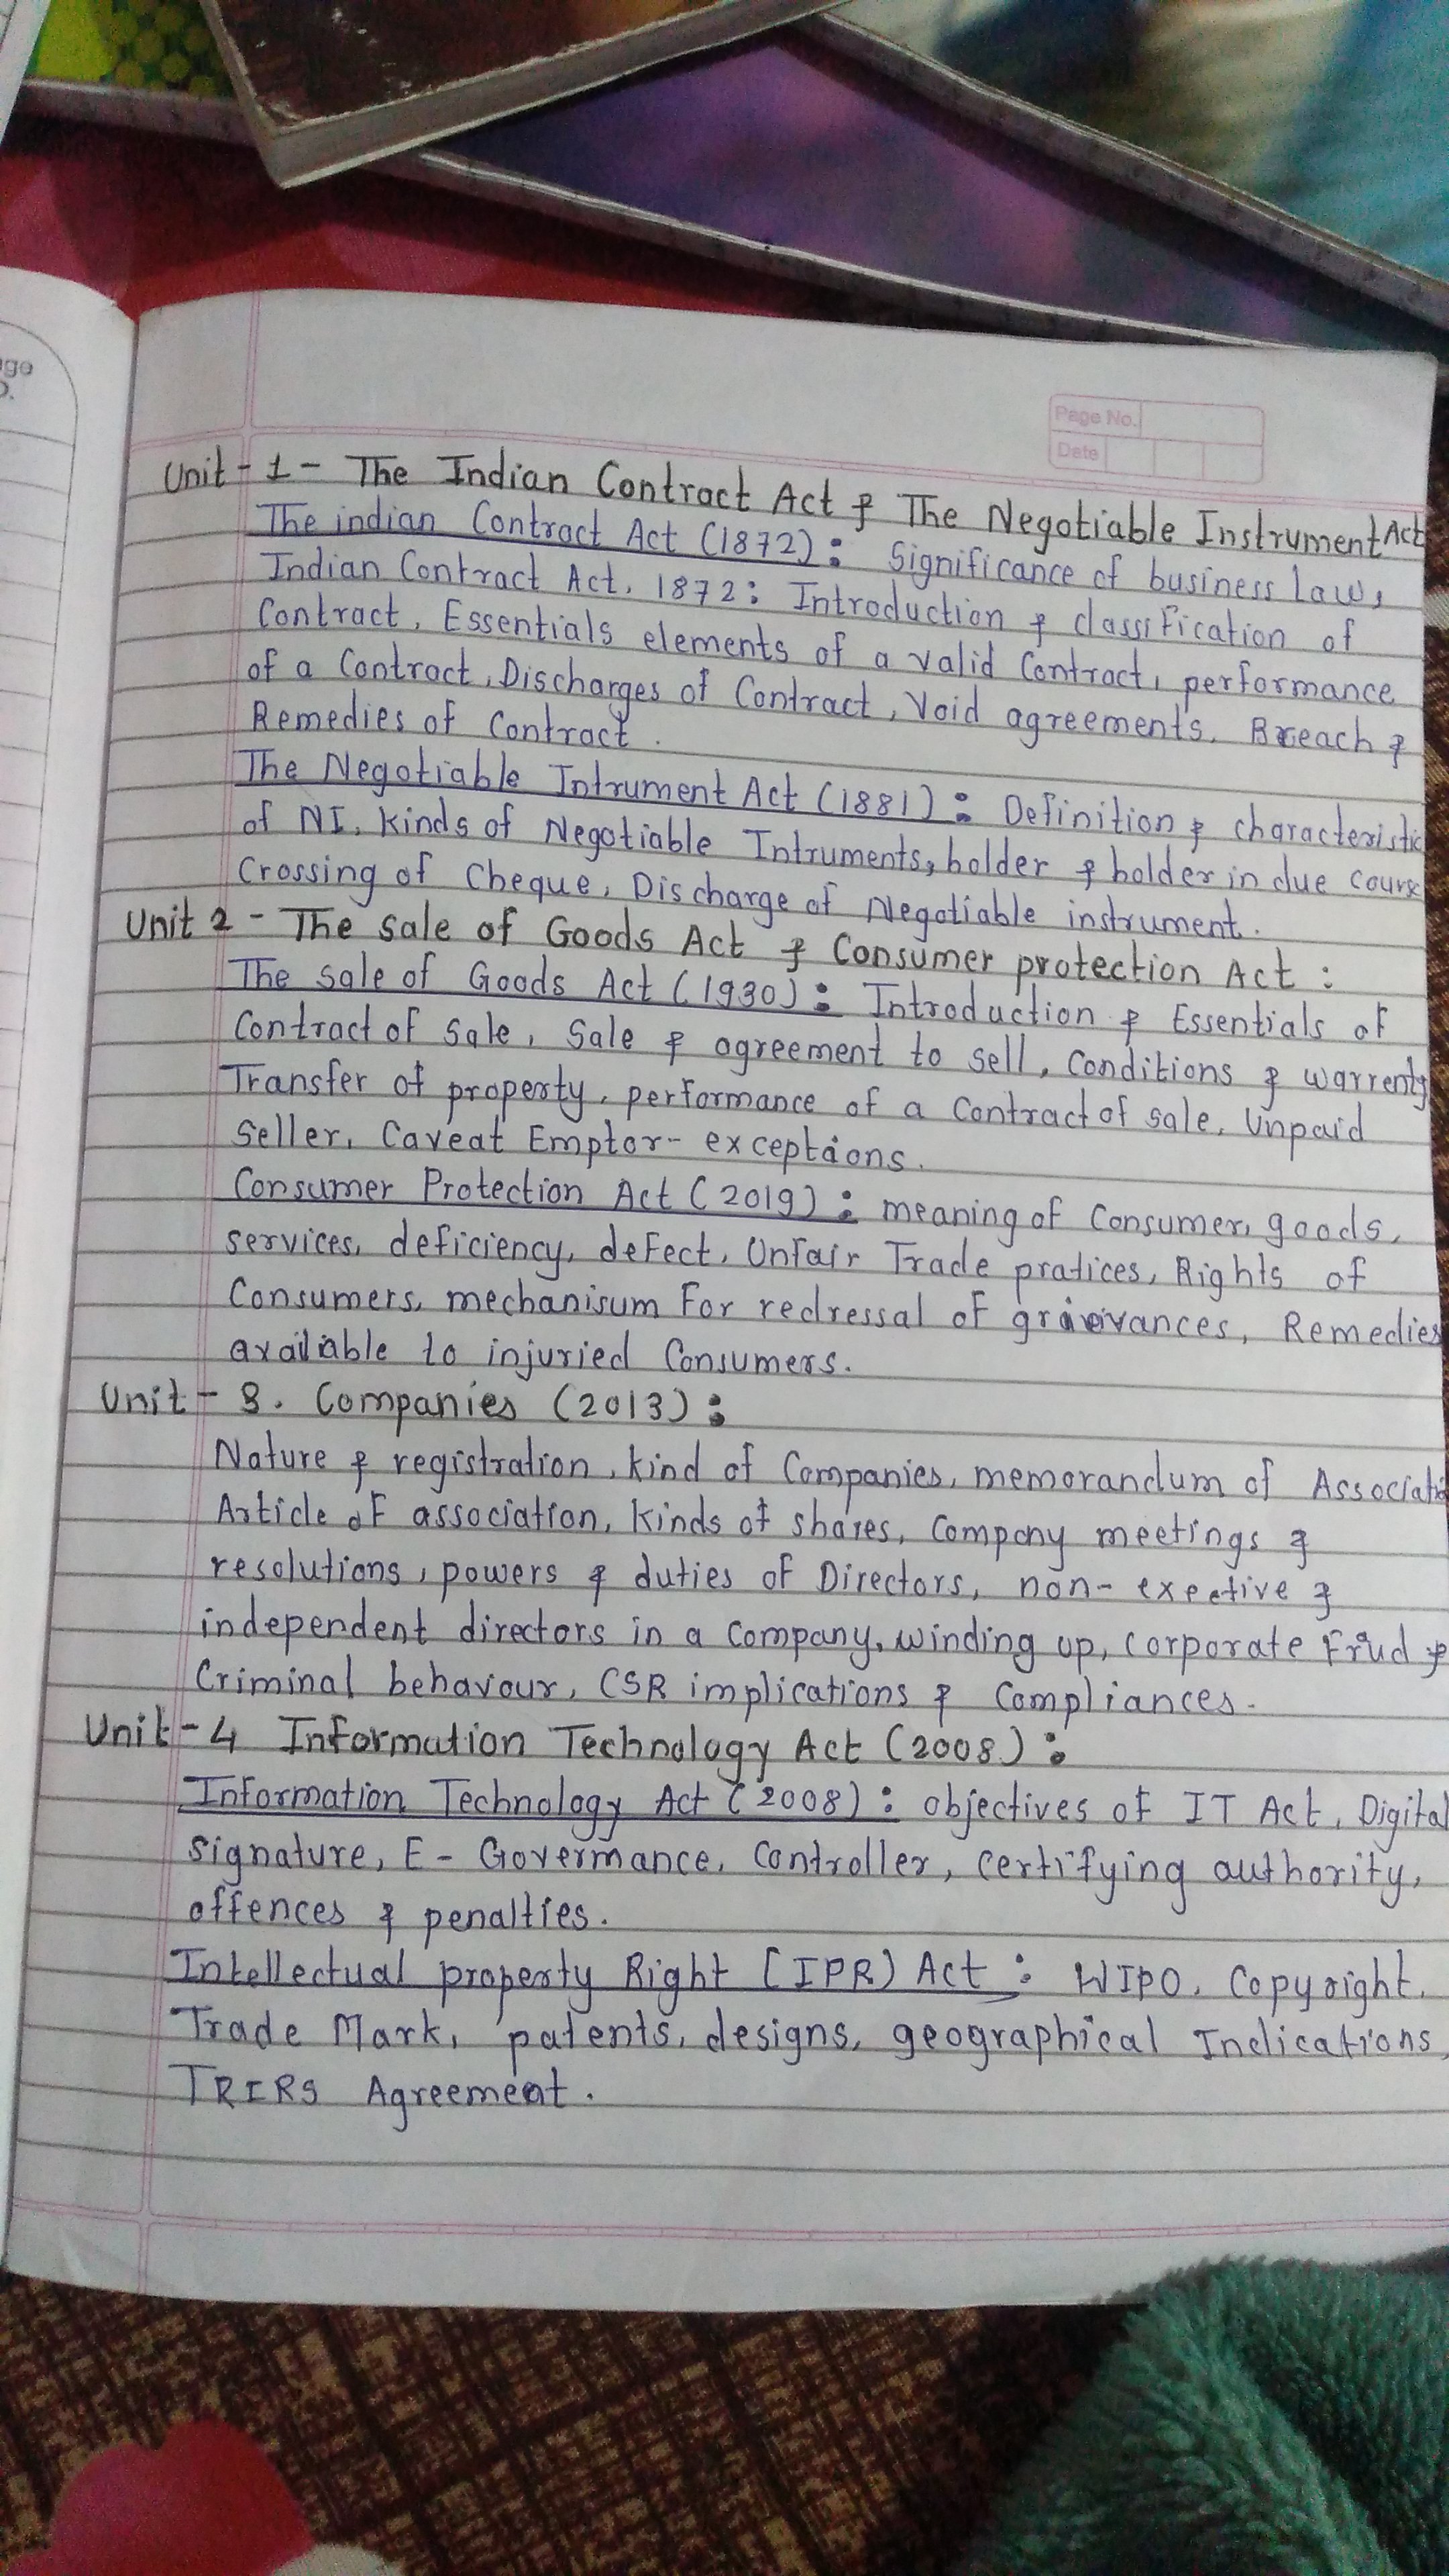 ge
Page No.
Date
Unit - 1 - The Indian Contract Act & The Negotiable Instrument Act
The indian Contract Act (1872): Significance of business law,
Indian Contract Act, 1872: Introduction & classification of
Contract, Essentials elements of a valid Contract, performance
of a Contract, Discharges of Contract, Void agreements, Breach &
Remedies of Contract.
The Negotiable Intrument Act (1881): Definition & characteristic
of NI, Kinds of Negotiable Intruments, holder & holder in due cours
Crossing of Cheque, Discharge of Negotiable instrument.
Unit 2 - The sale of Goods Act & Consumer protection Act :
The sale of Goods Act (1930): Introduction & Essentials of
Contract of Sale, Sale & agreement to sell, Conditions & warrenty
Transfer of property, performance of a Contract of sale, Unpaid
Seller, Caveat Emptor - exceptions.
Consumer Protection Act (2019): meaning of Consumer, goods,
services, deficiency, defect, Unfair Trade pratices, Rights of
Consumers, mechanisum For redressal of grievances, Remedies
available to injuried Consumers.
Unit - 3. Companies (2013):
Nature & registration, kind of Companies, memorandum of Associati
Article of association, Kinds of shares, Company meetings &
resolutions, powers & duties of Directors, non- exective &
independent directors in a Company, winding up, corporate Frud &
Criminal behavour, CSR implications & Compliances.
Unit - 4 Information Technology Act (2008):
Information Technology Act (2008): objectives of IT Act, Digital
signature, E - Govermance, Controller, certifying authority,
offences & penalties.
Intellectual property Right [IPR) Act : WIPO, Copyright,
Trade Mark, patents, designs, geographical Indications,
TRIRS Agreement.